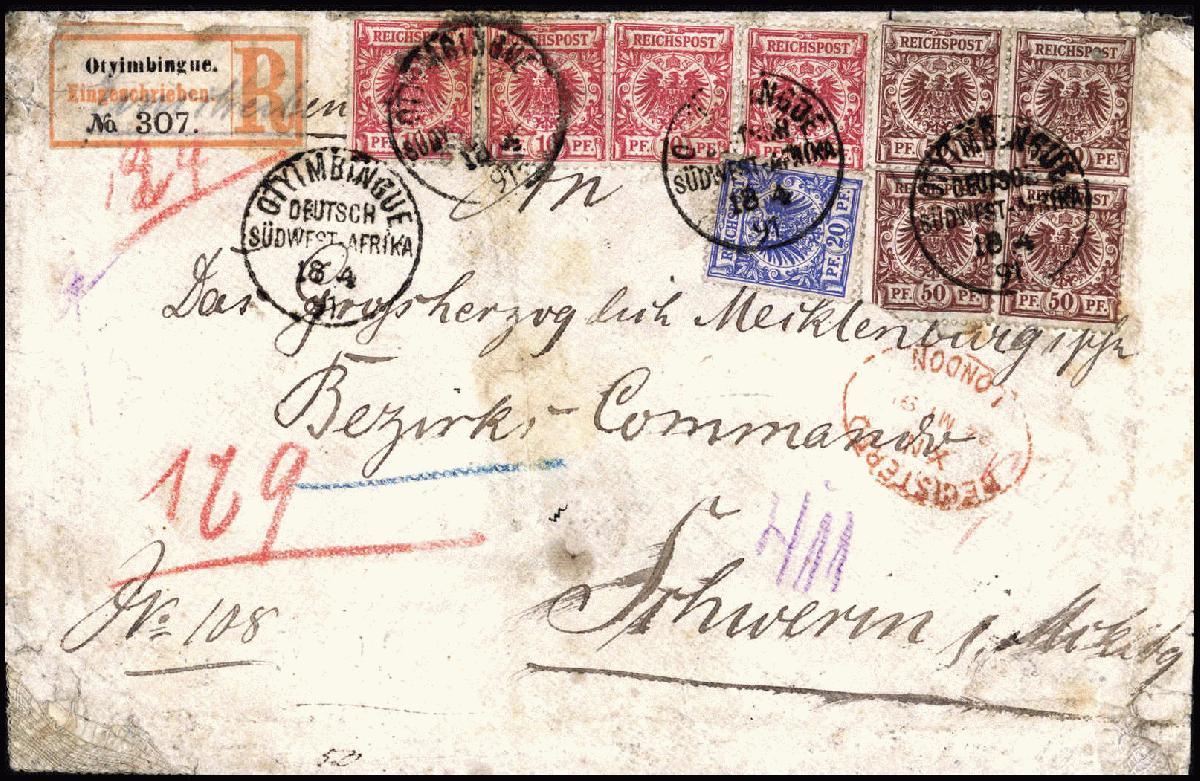 Otyimbingue.
Eingeschrieben.
№ 307.
R
REICHSPOST REICHSPOST REICHSPOST REICHSPOST REICHSPOST REICHSPOST
PF. 10 PF. PF. PF.
REICHSPOST REICHSPOST
REICHSPOST PF. 20 PF.
PF. 50 PF. PF. 50 PF.
OTYIMBINGUE
DEUTSCH
SÜDWEST-AFRIKA
18 4
91
OTYIMBINGUE
SÜDW
18 4
91
OTYIMBINGUE
DEUTSCH
SÜDWEST-AFRIKA
18 4
91
OTYIMBINGUE
DEUTSCH
SÜDWEST-AFRIKA
18 4
91
An
Das Grossherzoglich Mecklenburgische
Bezirks-Commando
Schwerin i. Mcklbg
REGISTERED
LONDON
MY 91
169
№ 108
50